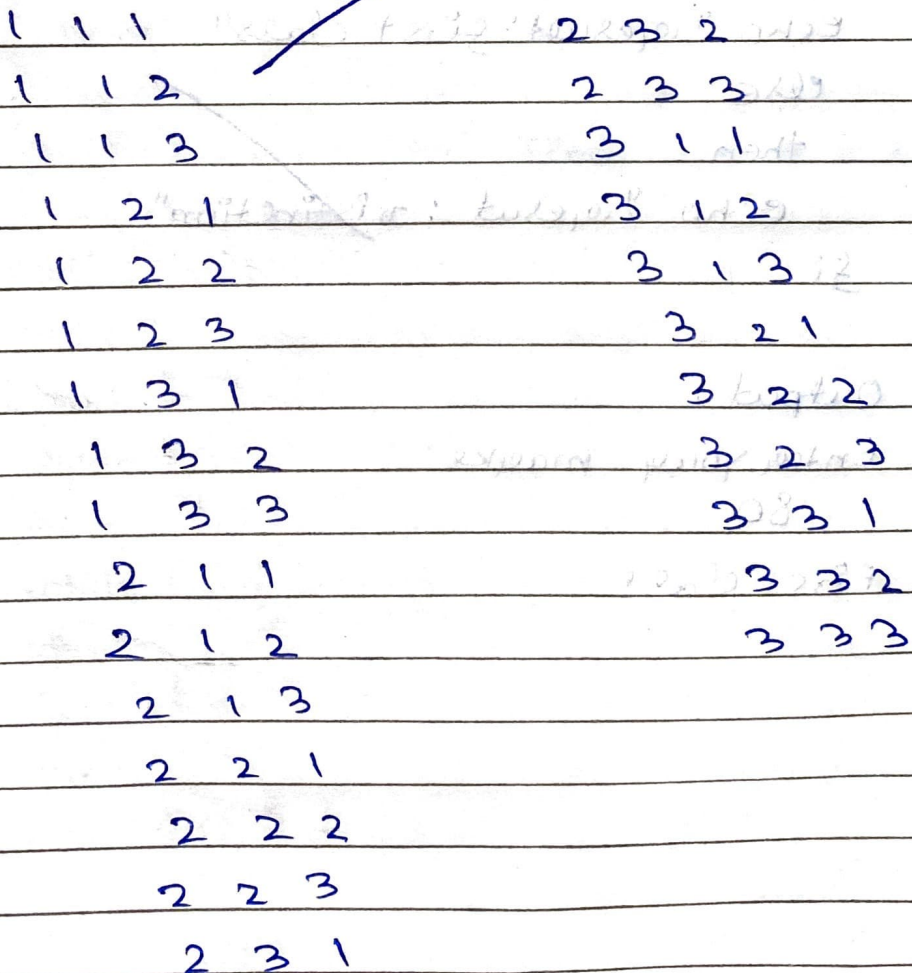 1 1 1
1 1 2
1 1 3
1 2 1
1 2 2
1 2 3
1 3 1
1 3 2
1 3 3
2 1 1
2 1 2
2 1 3
2 2 1
2 2 2
2 2 3
2 3 1
2 3 2
2 3 3
3 1 1
3 1 2
3 1 3
3 2 1
3 2 2
3 2 3
3 3 1
3 3 2
3 3 3